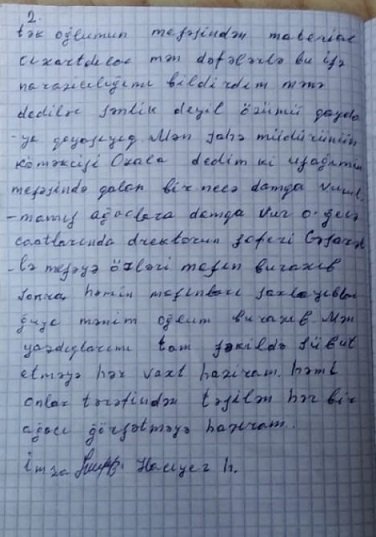 2.
tək oğlumun meşəsindən material
cıxartdılar mən dəfələrlə bu işə
narazılılığımı bildirdim mənə
dedilər sənlik deyil özümü qayda
-ya qoyasıyıq Mən sahə müdürünün
köməkcisi dedim ki uşağımın
meşəsində qalan bir necə damğa vurul-
-mamış ağaclara damğa vur o gecə
saatlarında direktorun şoferi
-lə meşəyə özləri maşın buraxıb
sonra həmin maşınları saxlayıblar
guya mənim oğlum buraxıb. Mən
yazdıqlarımı tam şəkildə sübut
etməyə hər vaxt hazıram. həmi
onlar tərəfindən kəsilən hər bir
ağacı görsətməyə hazıram.
imza Hacıyev h.